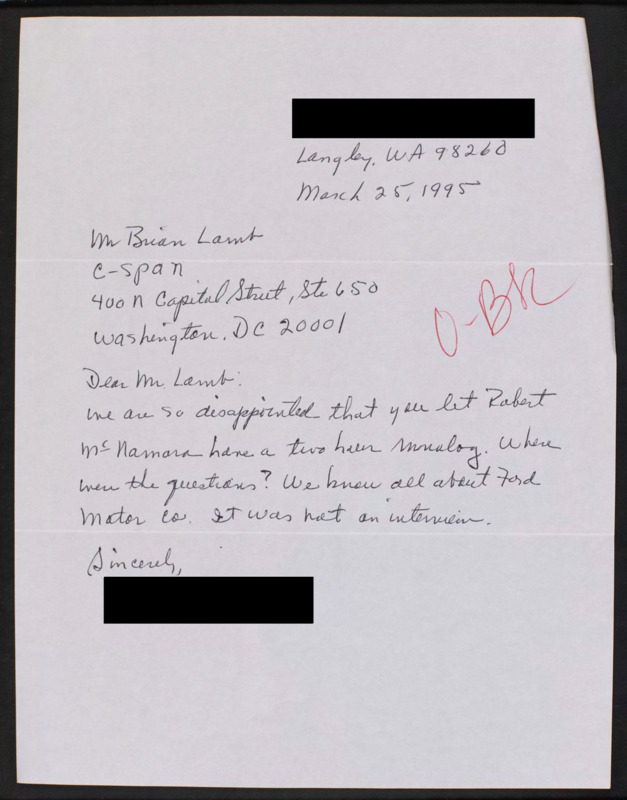 Langley, WA 98260
March 25, 1995
Mr Brian Lamb
C-span
400 N Capital Street, Ste 650
Washington, DC 20001
O-BK
Dear Mr. Lamb:
We are so disappointed that you let Robert
McNamara have a two hour monolog. Where
were the questions? We know all about Ford
Motor Co. It was not an interview.
Sincerely,